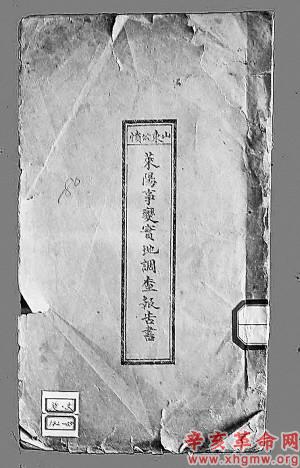 山東公憤
萊陽事變實地調查報告書
辛亥革命网
www.xhgmw.org